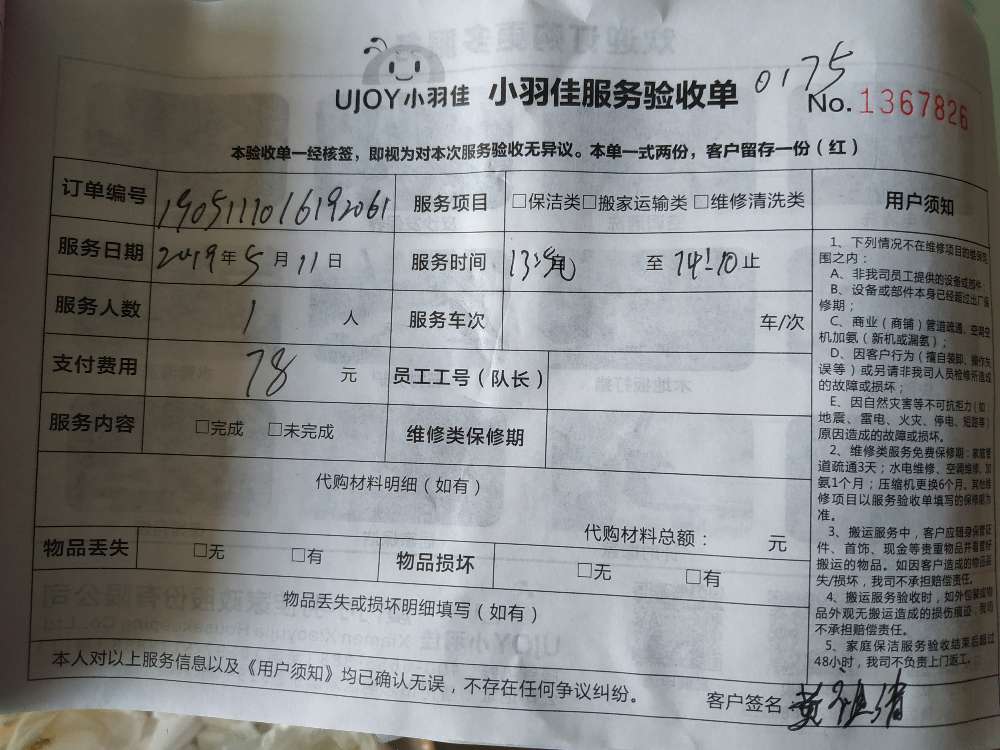 UJOY小羽佳 小羽佳服务验收单 0175
No. 1367826
本验收单一经核签，即视为对本次服务验收无异议。本单一式两份，客户留存一份（红）
订单编号 1905111016192061 服务项目 □保洁类□搬家运输类□维修清洗类
服务日期 2019年5月11日 服务时间 13: 至 14:10止
服务人数 1 人 服务车次 车/次
支付费用 78 元 员工工号（队长）
服务内容 □完成 □未完成 维修类保修期
代购材料明细（如有）
代购材料总额： 元
物品丢失 □无 □有 物品损坏 □无 □有
物品丢失或损坏明细填写（如有）
本人对以上服务信息以及《用户须知》均已确认无误，不存在任何争议纠纷。
客户签名 黄
用户须知
1、下列情况不在维修项目的维保范
围之内：
A、非我司员工提供的设备或部件
B、设备或部件本身已经超过出厂保
修期；
C、商业（商铺）管道疏通、空调空
机加氨（新机或漏氨）；
D、因客户行为（擅自装卸、操作失
误等）或另请非我司人员检修所造成
的故障或损坏；
E、因自然灾害等不可抗拒力（如：
地震、雷电、火灾、停电、短路等）
原因造成的故障或损坏。
2、维修类服务免费保修期：家庭管
道疏通3天；水电维修、空调维修、加
氨1个月；压缩机更换6个月。其他维
修项目以服务验收单填写的保修期为
准。
3、搬运服务中，客户应随身保管证
件、首饰、现金等贵重物品并看管好
搬运的物品。如因客户造成的物品丢
失/损坏，我司不承担赔偿责任。
4、搬运服务验收时，如外包装或物
品外观无搬运造成的损伤痕迹，我司
不承担赔偿责任。
5、家庭保洁服务验收结束后超过
48小时，我司不负责上门返工。